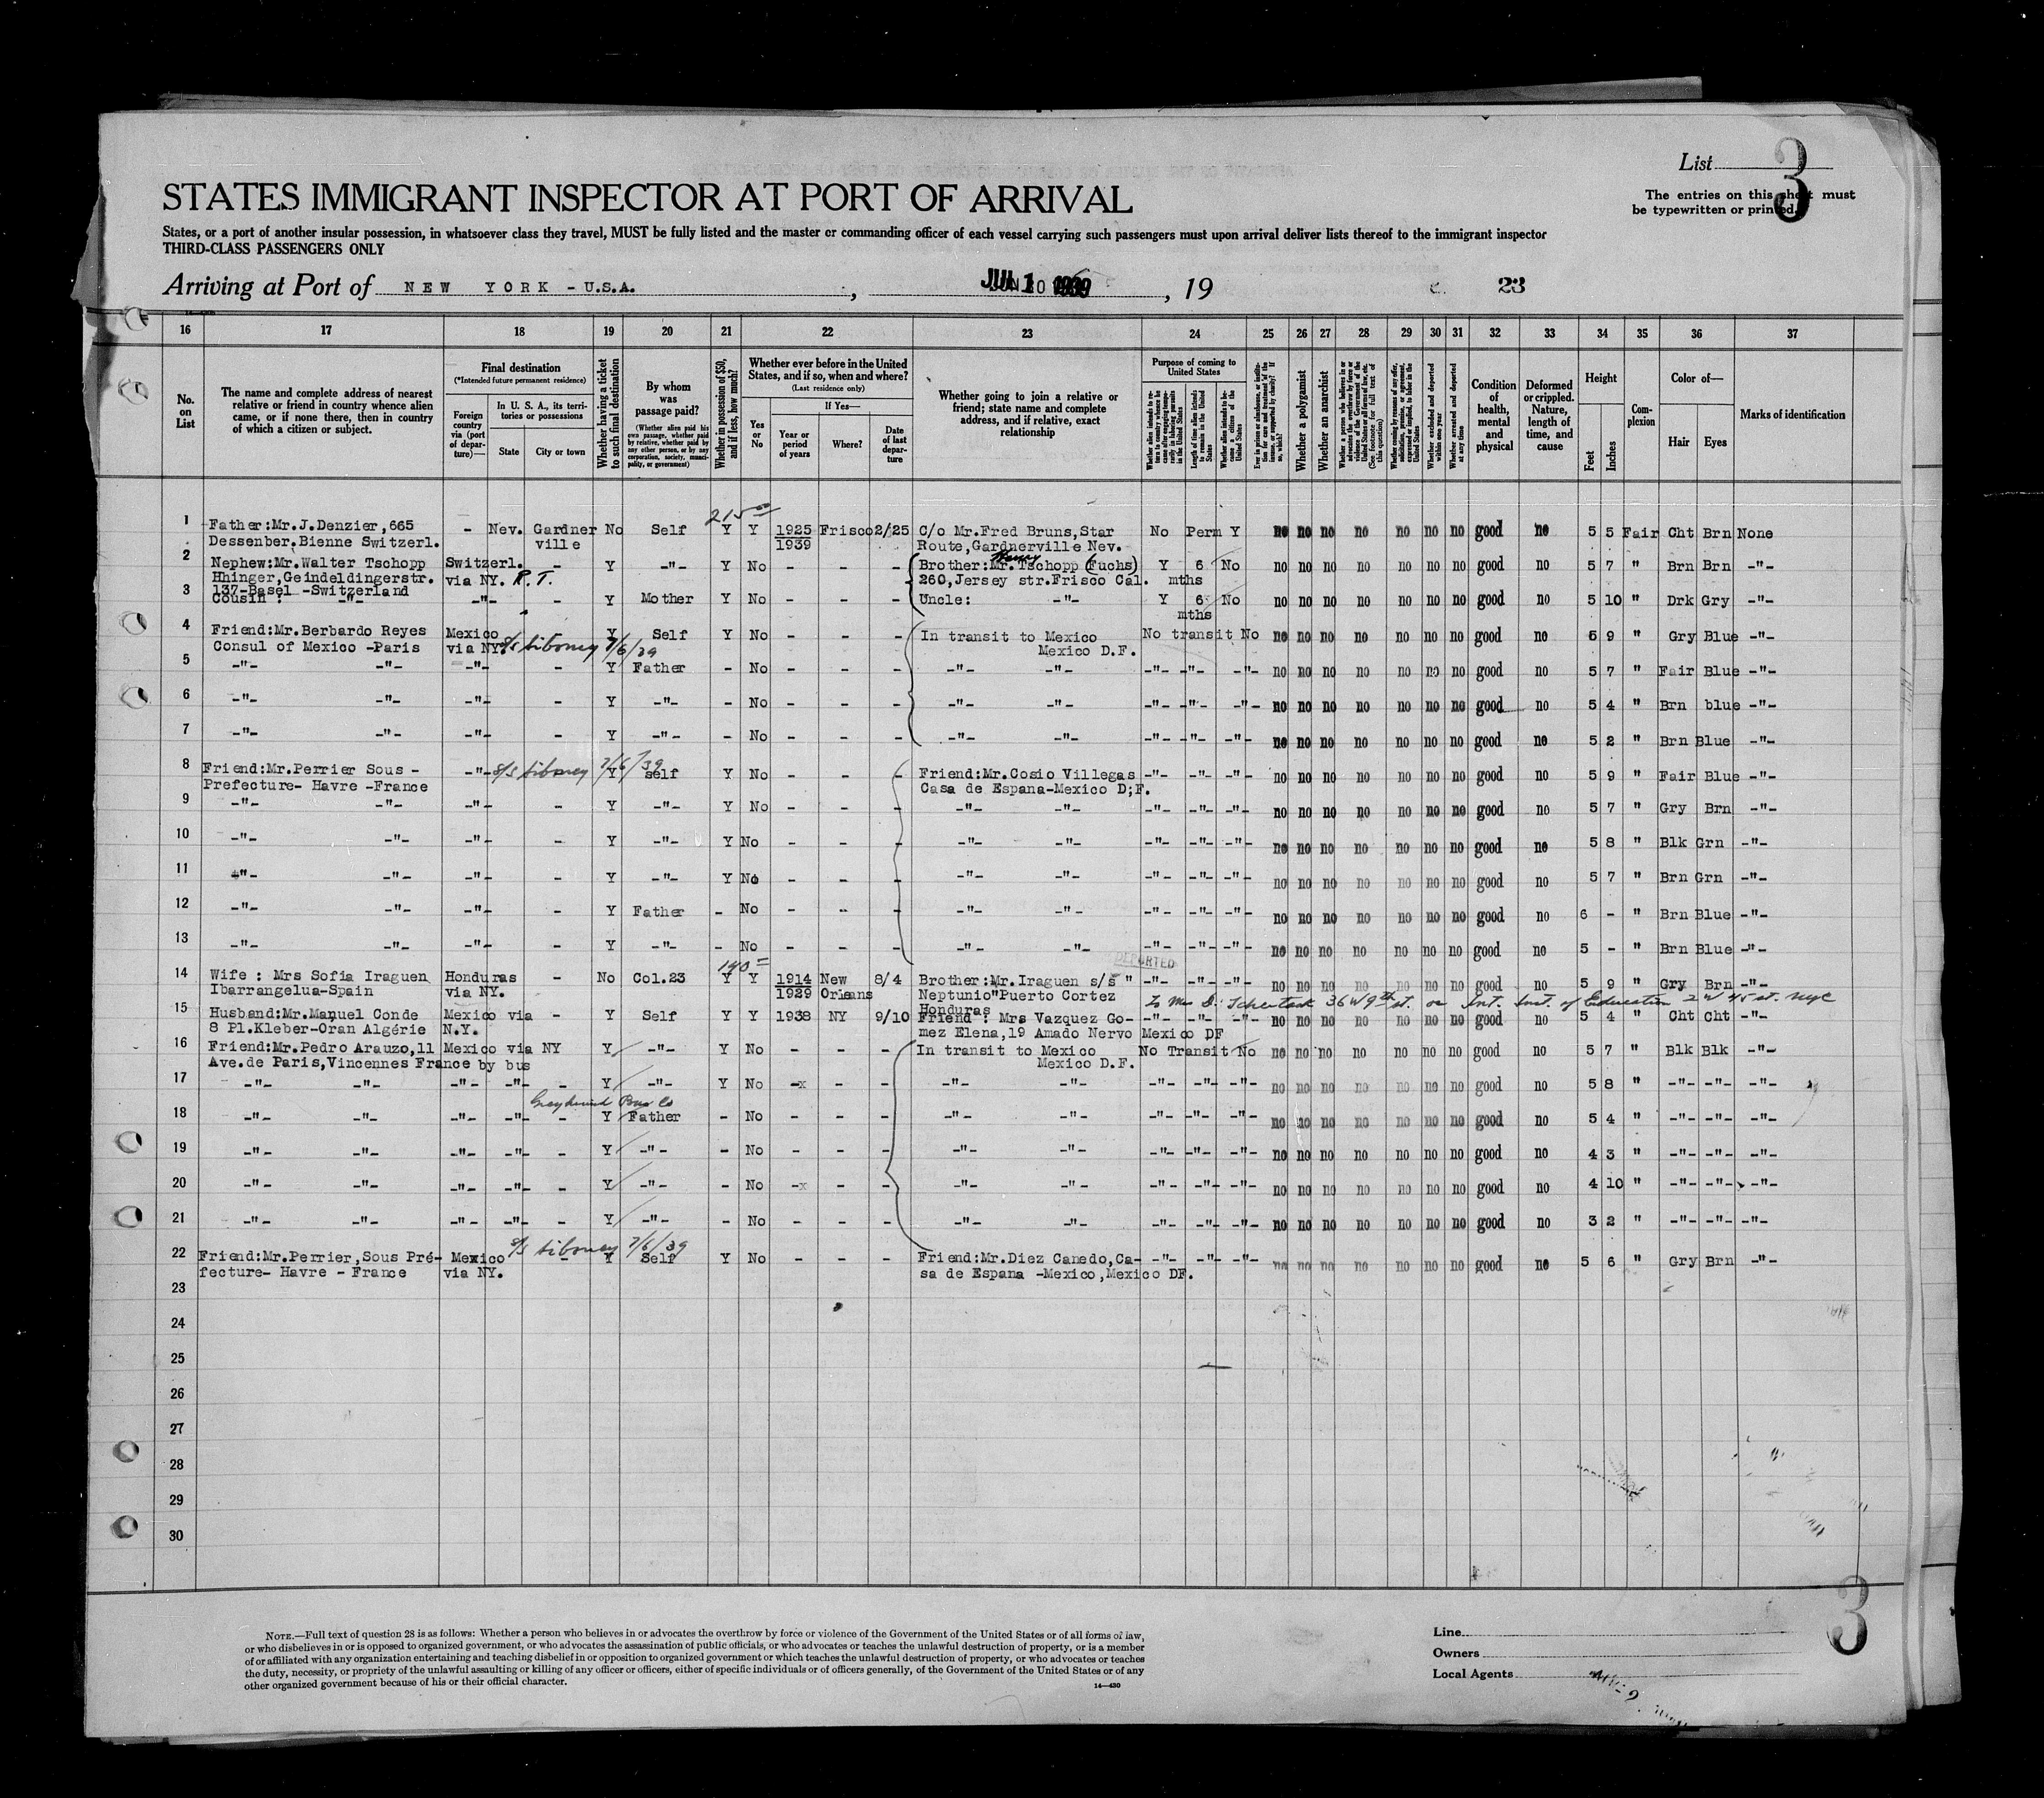 List 3
The entries on this sheet must
be typewritten or printed.
STATES IMMIGRANT INSPECTOR AT PORT OF ARRIVAL
States, or a port of another insular possession, in whatsoever class they travel, MUST be fully listed and the master or commanding officer of each vessel carrying such passengers must upon arrival deliver lists thereof to the immigrant inspector
THIRD-CLASS PASSENGERS ONLY
Arriving at Port of NEW YORK - U.S.A. , JUL 1 1939 , 19 23
16 17 18 19 20 21 22 23 24 25 26 27 28 29 30 31 32 33 34 35 36 37
No. on List
The name and complete address of nearest relative or friend in country whence alien came, or if none there, then in country of which a citizen or subject.
Final destination
(*Intended future permanent residence)
Foreign country via (port of departure)—
In U. S. A., its territories or possessions
State
City or town
Whether having a ticket to such final destination
By whom was passage paid?
(Whether alien paid his own passage, whether paid by relative, whether paid by any other person, or by any corporation, society, municipality, or government)
Whether in possession of $50, and if less, how much?
Whether ever before in the United States, and if so, when and where?
(Last residence only)
Yes or No
If Yes—
Year or period of years
Where?
Date of last departure
Whether going to join a relative or friend; state name and complete address, and if relative, exact relationship
Purpose of coming to United States
Whether a polygamist
Whether an anarchist
Whether excluded and deported within one year
Whether arrested and deported at any time
Condition of health, mental and physical
Deformed or crippled. Nature, length of time, and cause
Height
Feet
Inches
Complexion
Color of—
Hair
Eyes
Marks of identification
215 00
1 Father:Mr.J.Denzier,665 - Nev. Gardner No Self Y Y 1925 Frisco 2/25 C/o Mr.Fred Bruns,Star No Perm Y no no no no no no no good no 5 5 Fair Cht Brn None
Dessenber.Bienne Switzerl. ville 1939 Route,Gardnerville Nev.
2 Nephew:Mr.Walter Tschopp Switzerl. - Y -"- Y No - - - Brother:Mr.Tschopp (Fuchs) Y 6 No no no no no no no no good no 5 7 " Brn Brn -"-
Henry
Hhinger,Geindeldingerstr. via NY. R.T. 260,Jersey str.Frisco Cal. mths
137-Basel -Switzerland
3 Cousin : -"- -"- - Y Mother Y No - - - Uncle: -"- Y 6 No no no no no no no no good no 5 10 " Drk Gry -"-
mths
4 Friend:Mr.Berbardo Reyes Mexico Y Self Y No - - - In transit to Mexico No transit No no no no no no no no good no 5 9 " Gry Blue -"-
Consul of Mexico -Paris via NY. s/s Siboney 7/6/39 Mexico D.F.
5 -"- -"- -"- - Y Father - No - - - -"- -"- -"- -"- -"- no no no no no no no good no 5 7 " Fair Blue -"-
6 -"- -"- -"- - Y -"- - No - - - -"- -"- -"- -"- -"- no no no no no no no good no 5 4 " Brn blue -"-
7 -"- -"- -"- - Y -"- - No - - - -"- -"- -"- -"- -"- no no no no no no no good no 5 2 " Brn Blue -"-
8 Friend:Mr.Perrier Sous - -"- s/s Siboney 7/6/39 Y self Y No - - - Friend:Mr.Cosio Villegas -"- -"- -"- no no no no no no no good no 5 9 " Fair Blue -"-
Prefecture- Havre -France Casa de Espana-Mexico D;F.
9 -"- -"- -"- - Y -"- Y No - - - -"- -"- -"- -"- -"- no no no no no no no good no 5 7 " Gry Brn -"-
10 -"- -"- -"- - Y -"- Y No - - - -"- -"- -"- -"- -"- no no no no no no no good no 5 8 " Blk Grn -"-
11 -"- -"- -"- - Y -"- Y No - - - -"- -"- -"- -"- -"- no no no no no no no good no 5 7 " Brn Grn -"-
12 -"- -"- -"- - Y Father - No - - - -"- -"- -"- -"- -"- no no no no no no no good no 6 - " Brn Blue -"-
13 -"- -"- -"- - Y -"- - No - - - -"- -"- -"- -"- -"- no no no no no no no good no 5 - " Brn Blue -"-
DEPORTED
14 Wife : Mrs Sofia Iraguen Honduras - No Col.23 Y Y 1914 New 8/4 Brother:Mr.Iraguen s/s " -"- -"- -"- no no no no no no no good no 5 9 " Gry Brn -"-
Ibarrangelua-Spain via NY. 1929 Orleans Neptunio"Puerto Cortez
Honduras
15 Husband:Mr.Manuel Conde Mexico via - Y Self Y Y 1938 NY 9/10 Friend : Mrs Vazquez Go- -"- -"- -"- no no no no no no no good no 5 4 " Cht Cht -"-
8 Pl.Kleber-Oran Algérie N.Y. mez Elena,19 Amado Nervo Mexico DF
16 Friend:Mr.Pedro Arauzo,11 Mexico via NY Y -"- Y No - - - In transit to Mexico No Transit No no no no no no no no good no 5 7 " Blk Blk -"-
Ave.de Paris,Vincennes France by bus Mexico D.F.
17 -"- -"- -"- -"- - Y -"- Y No -x - - -"- -"- -"- -"- -"- no no no no no no no good no 5 8 " -"- -"- -"-
Greyhound Bus Co
18 -"- -"- -"- -"- - Y Father - No - - - -"- -"- -"- -"- -"- no no no no no no no good no 5 4 " -"- -"- -"-
19 -"- -"- -"- -"- - Y -"- - No - - - -"- -"- -"- -"- -"- no no no no no no no good no 4 3 " -"- -"- -"-
20 -"- -"- -"- -"- - Y -"- - No -x - - -"- -"- -"- -"- -"- no no no no no no no good no 4 10 " -"- -"- -"-
21 -"- -"- -"- -"- - Y -"- - No - - - -"- -"- -"- -"- -"- no no no no no no no good no 3 2 " -"- -"- -"-
s/s Siboney 7/6/39
22 Friend:Mr.Perrier,Sous Pré- Mexico - Y Self Y No - - - Friend:Mr.Diez Canedo,Ca- -"- -"- -"- no no no no no no no good no 5 6 " Gry Brn -"-
fecture- Havre - France via NY. sa de Espana -Mexico,Mexico DF.
23
24
25
26
27
28
29
30
NOTE.—Full text of question 28 is as follows: Whether a person who believes in or advocates the overthrow by force or violence of the Government of the United States or of all forms of law,
or who disbelieves in or is opposed to organized government, or who advocates the assassination of public officials, or who advocates or teaches the unlawful destruction of property, or is a member
of or affiliated with any organization entertaining and teaching disbelief in or opposition to organized government or which teaches the unlawful destruction of property, or who advocates or teaches
the duty, necessity, or propriety of the unlawful assaulting or killing of any officer or officers, either of specific individuals or of officers generally, of the Government of the United States or of any
other organized government because of his or their official character.
14—430
Line
Owners
Local Agents
3